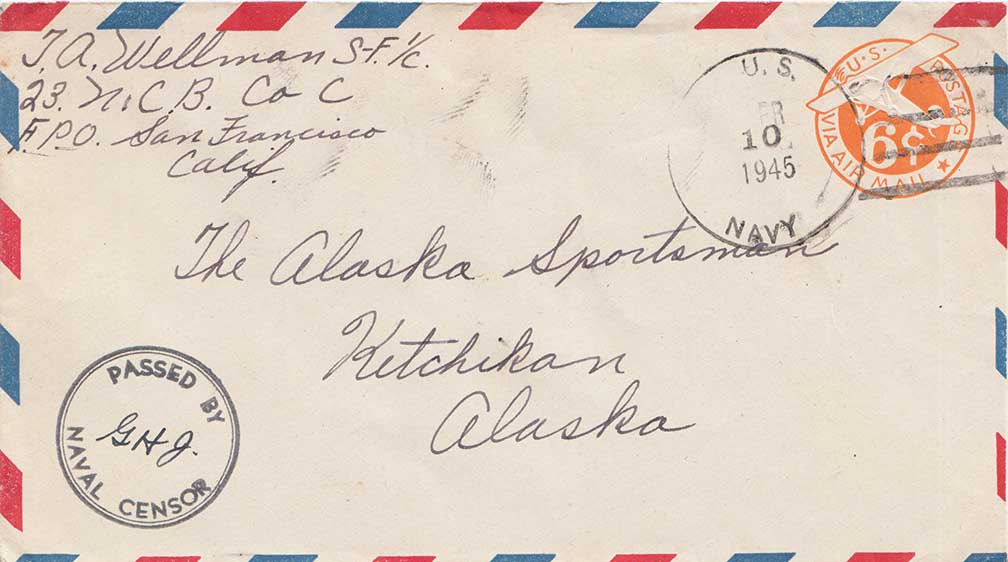 T. A. Wellman S-F. 1/c.
23. N.C.B. Co C
F.P.O. San Francisco
Calif.
U. S.
10
1945
NAVY
U.S. POSTAGE
6¢
VIA AIR MAIL
The Alaska Sportsman
Ketchikan
Alaska
PASSED BY
G H J.
NAVAL CENSOR